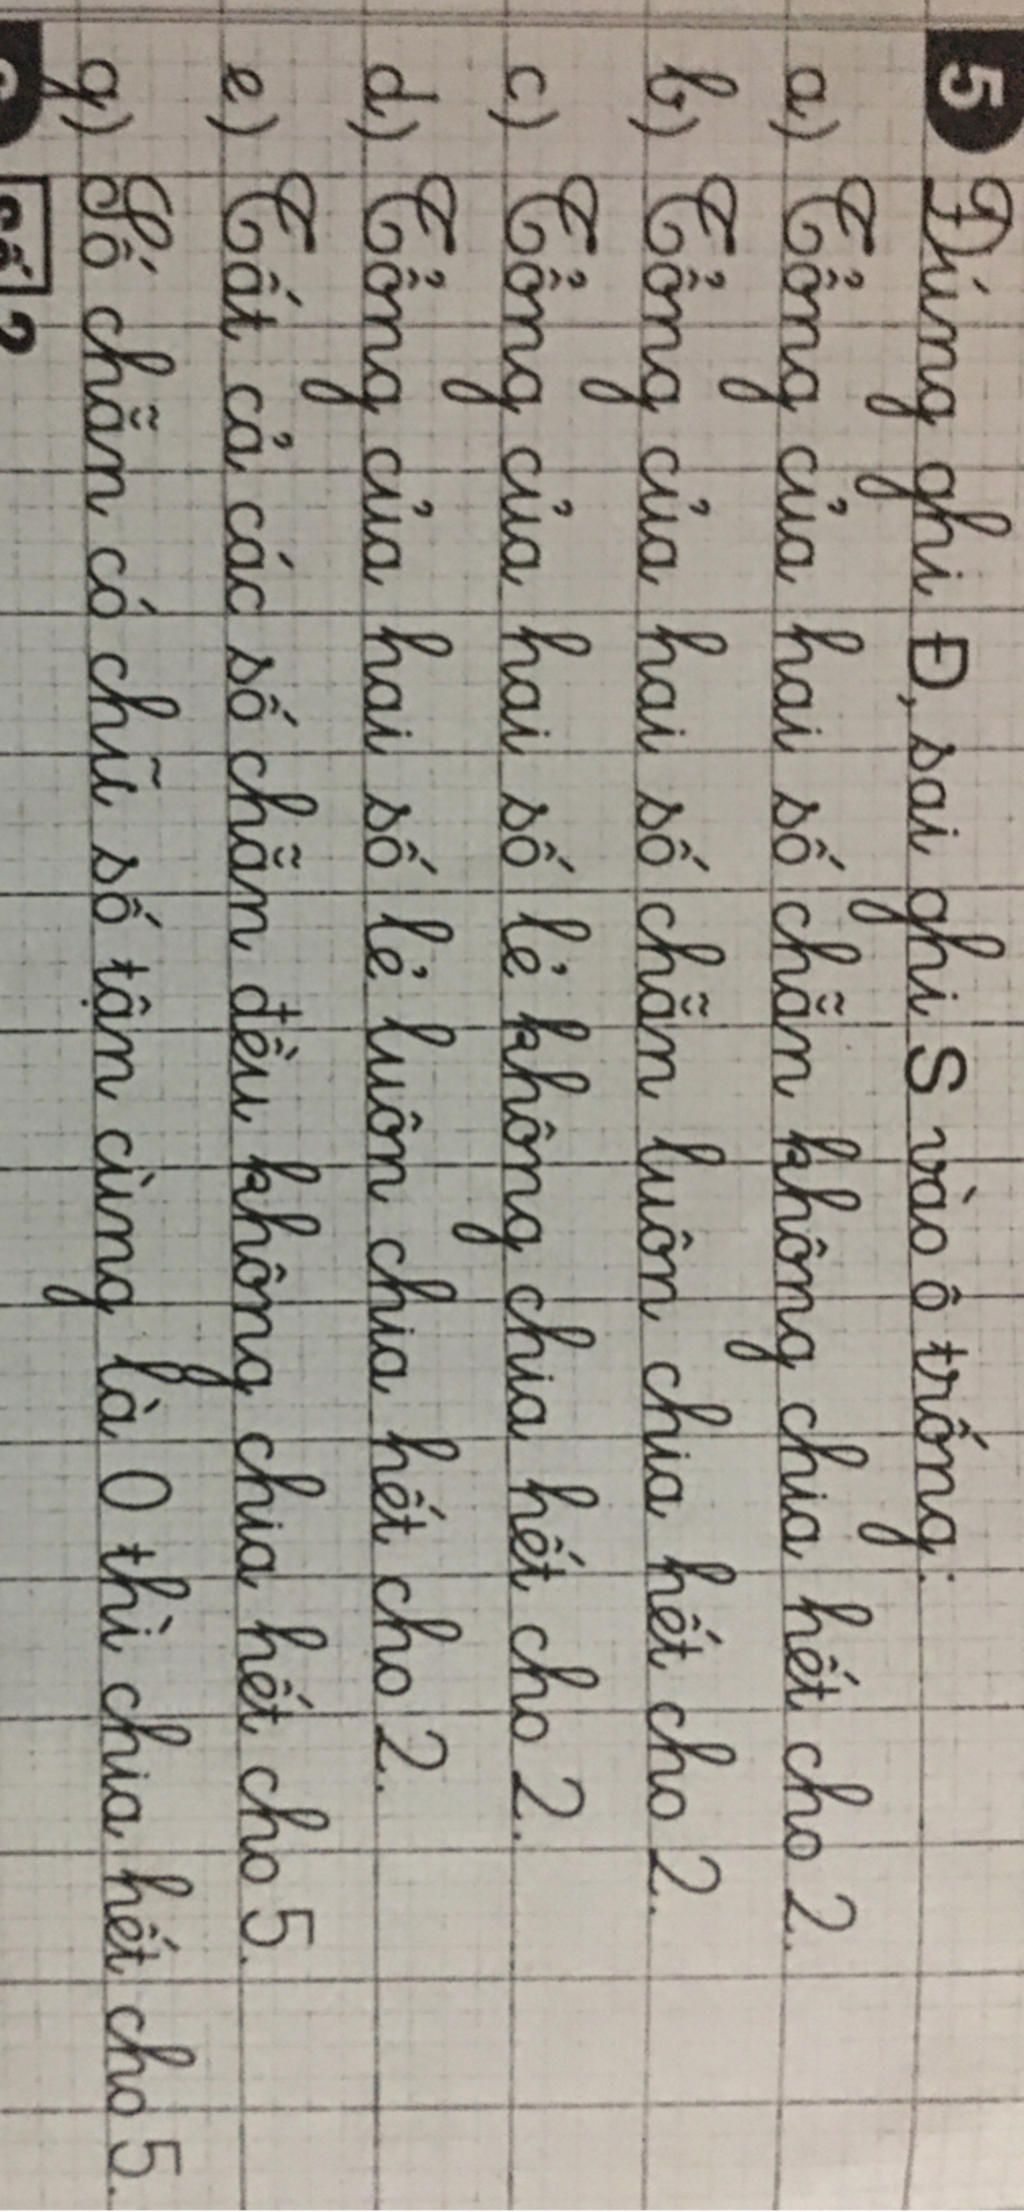 5 Đúng ghi Đ, sai ghi S vào ô trống:
a) Tổng của hai số chẵn không chia hết cho 2.
b) Tổng của hai số chẵn luôn chia hết cho 2.
c) Tổng của hai số lẻ không chia hết cho 2.
d) Tổng của hai số lẻ luôn chia hết cho 2.
e) Tất cả các số chẵn đều không chia hết cho 5.
g) Số chẵn có chữ số tận cùng là 0 thì chia hết cho 5.